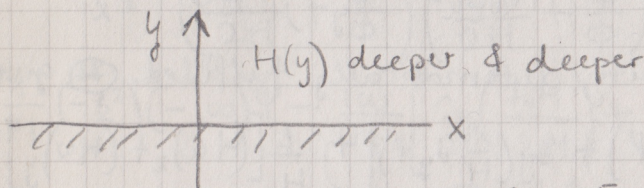 y
H(y) deeper & deeper
x